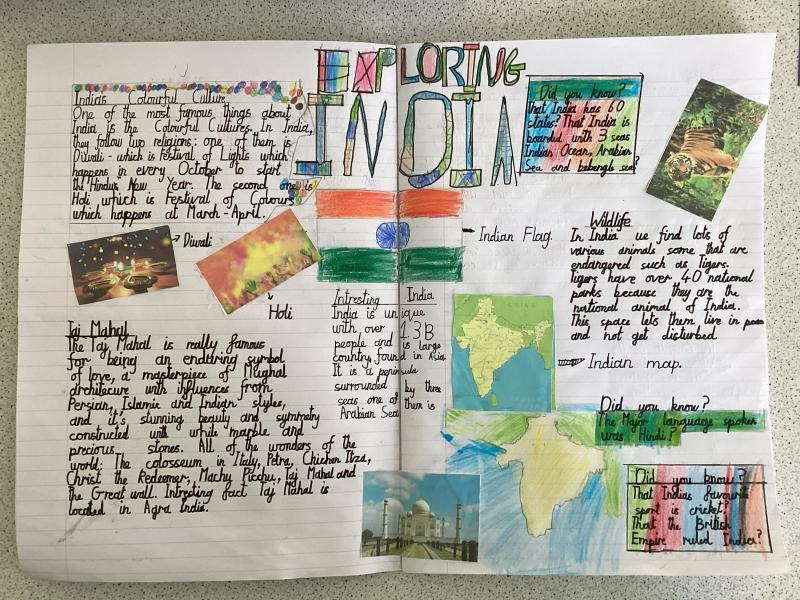 EXPLORING
INDIA
Indias Colourful Culture
One of the most famous things about
India is the Colourful Cultures. In India,
they follow two religions: one of them is
Diwali - which is Festival of Lights which
happens in every October to start
the Hindus New Year. The second one is
Holi which is Festival of Colours
which happens at March - April.
Diwali
Holi
Taj Mahal
The Taj Mahal is really famous
for being an enduring symbol
of love, a masterpiece of Mughal
architecure with influences from
Persian, Islamic and Indian styles,
and it's stunning beauty and symmetry
constructed with white marble and
precious stones. All of the wonders of the
world: The colosseum in Italy, Petra, Chichen Itza,
Christ the Redeemer, Machu Picchu, Taj Mahal and
the Great wall. Intresting fact Taj Mahal is
located in Agra India.
Intresting India
India is unique
with over 1.3B
people and is large
country found in Asia
It is a peninsula
surrounded by three
seas one of them is
Arabian Sea
Did you know?
that India has 60
states? That India is
boarded with 3 seas
Indian Ocean, Arabian
Sea and bebengle sea?
Indian Flag.
Wildlife
In India we find lots of
various animals some that are
endangered such as Tigers.
Tigers have over 40 national
parks because they are the
national animal of India.
This space lets them live in
and not get disturbed
Indian map.
Did you know?
The Major language spoken
was Hindi?
Did you know?
That Indias favourite
sport is cricket?
That the British
Empire ruled India?